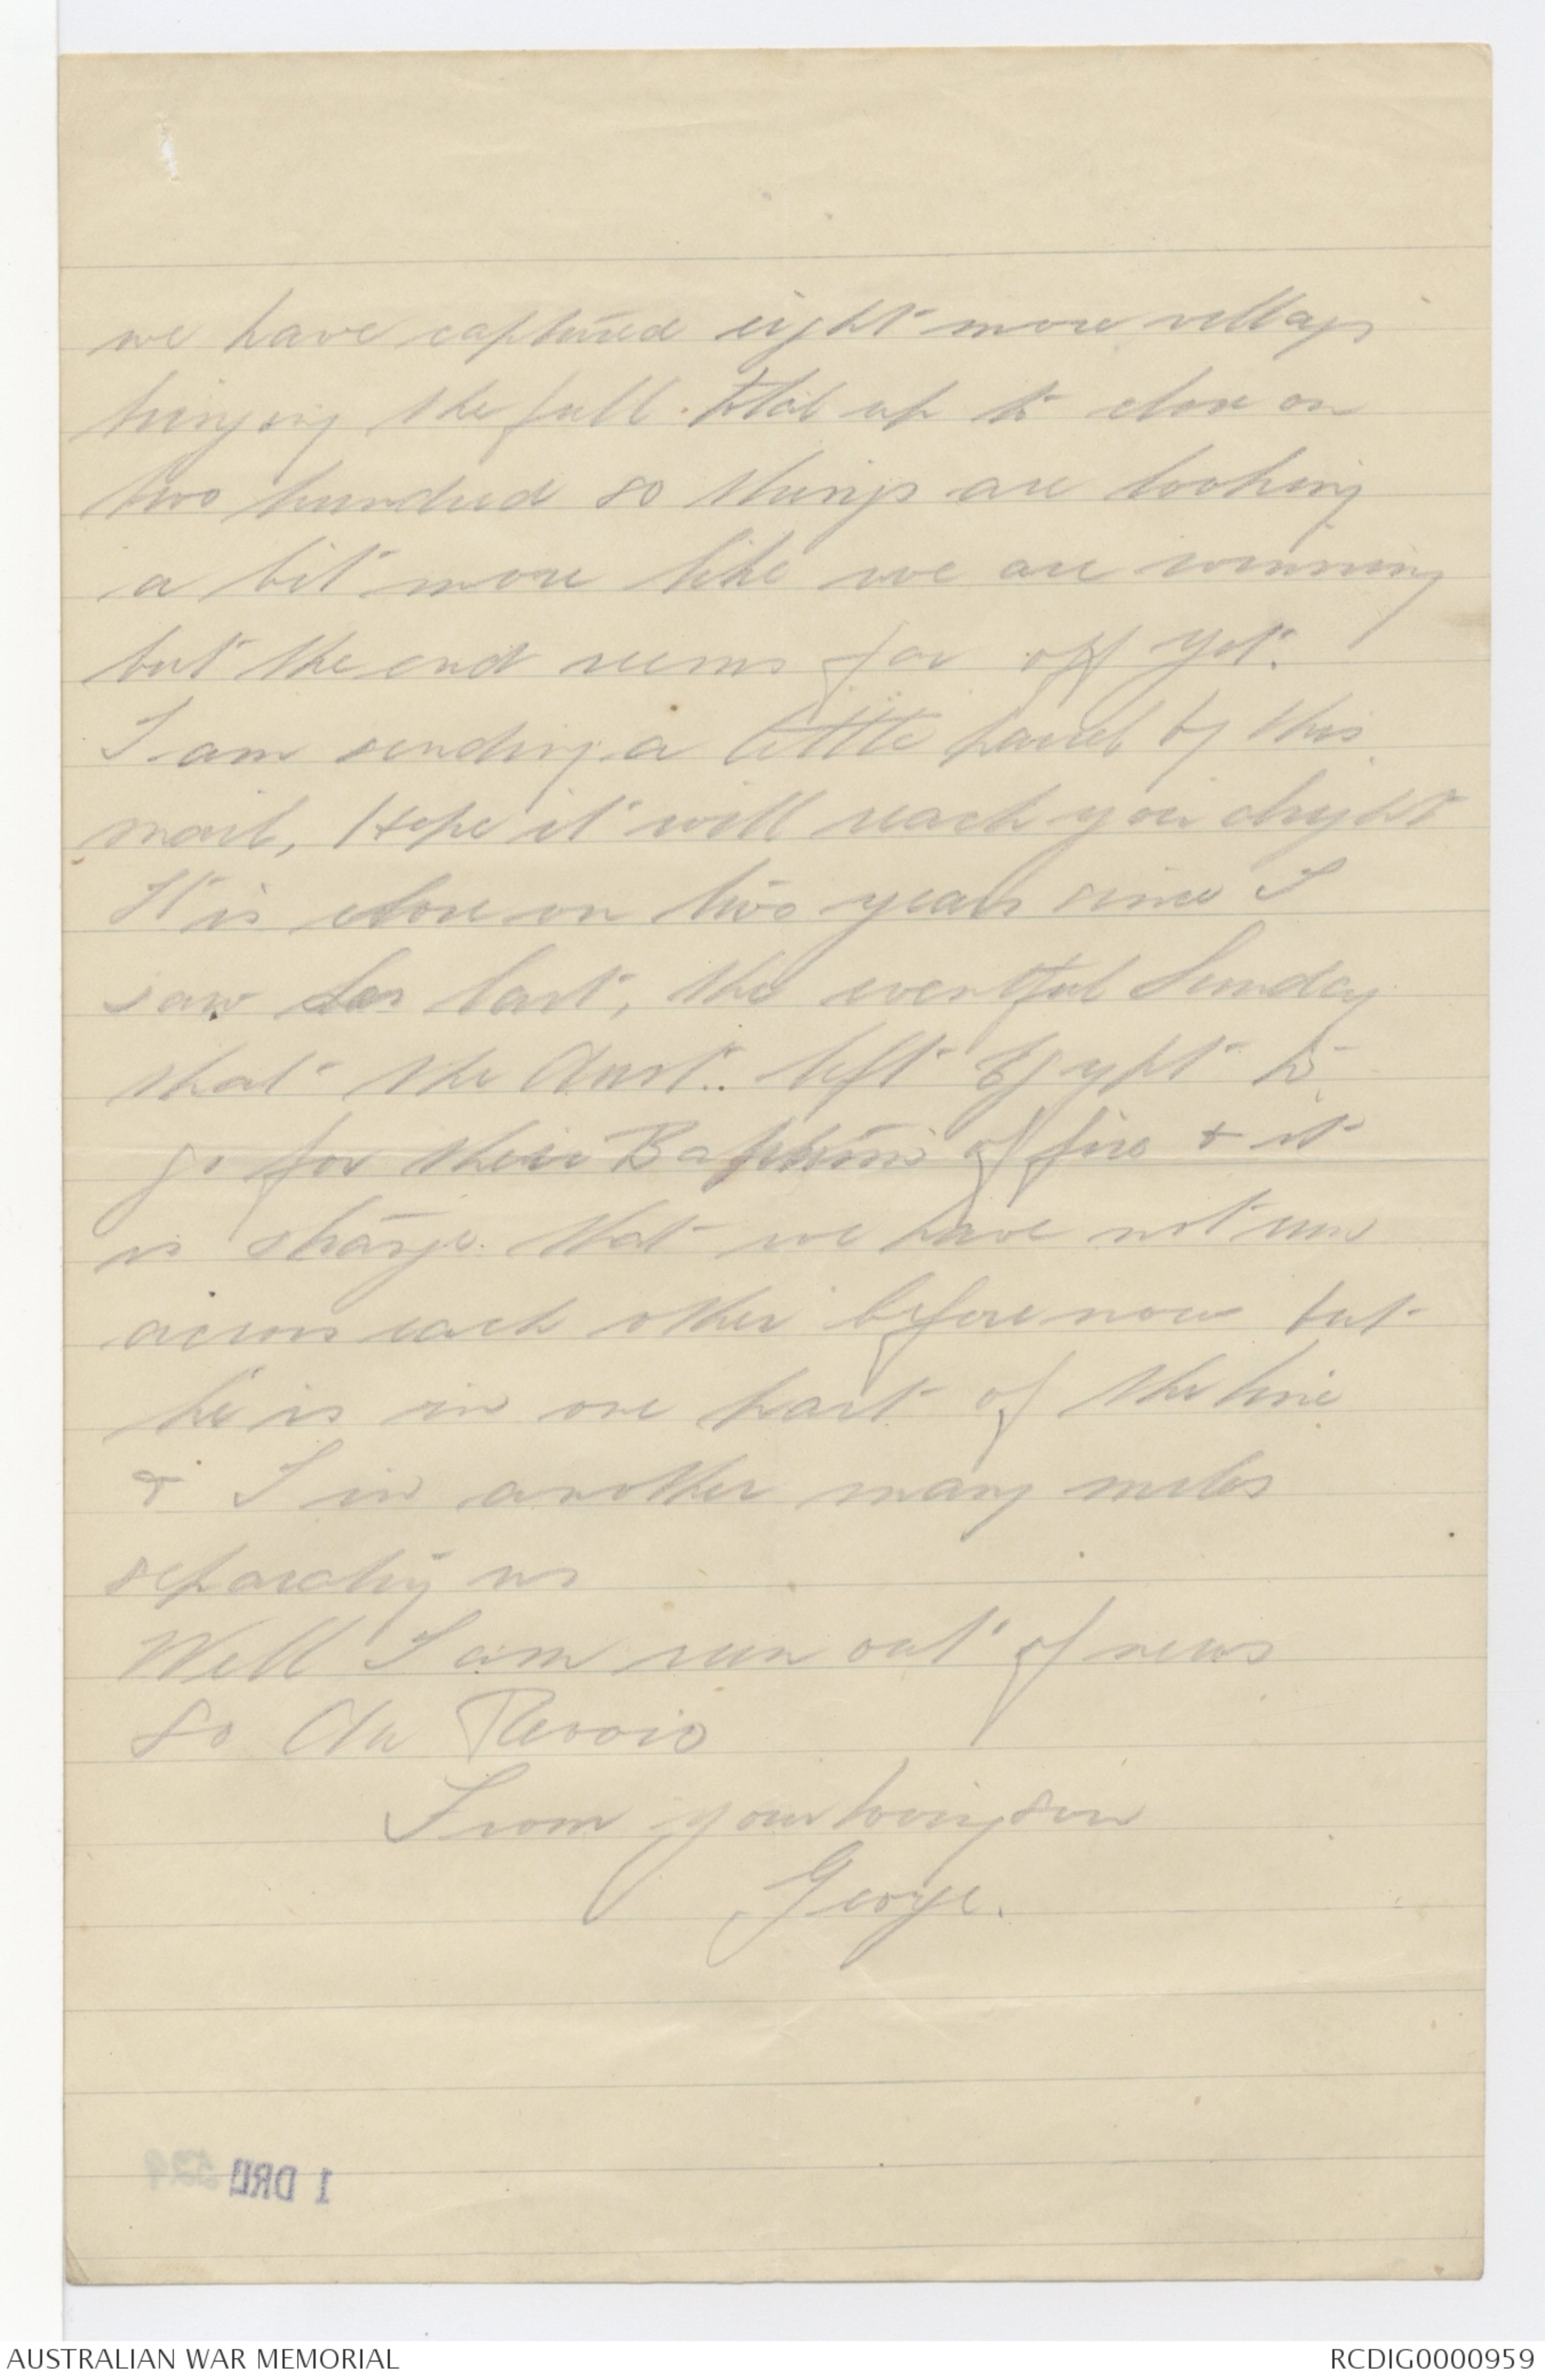 we have captured eight more villags
bringing the full total up to close on
two hundred so things are looking
a bit more like we are winning
but the end seems far off yet.
I am sending a little parcel by this
mail, Hope it will reach you alright
It is close on two years since I
saw Les last, the eventful Sunday
that the Aust. left Egypt to
go for their Baptism of fire & it
is strange that we have not run
across each other before now but
he is in one part of the line
& I in another many miles
separating us
Well I am run out of news
so Au Revoir
From your loving son
George.
1 DRL
AUSTRALIAN WAR MEMORIAL
RCDIG0000959